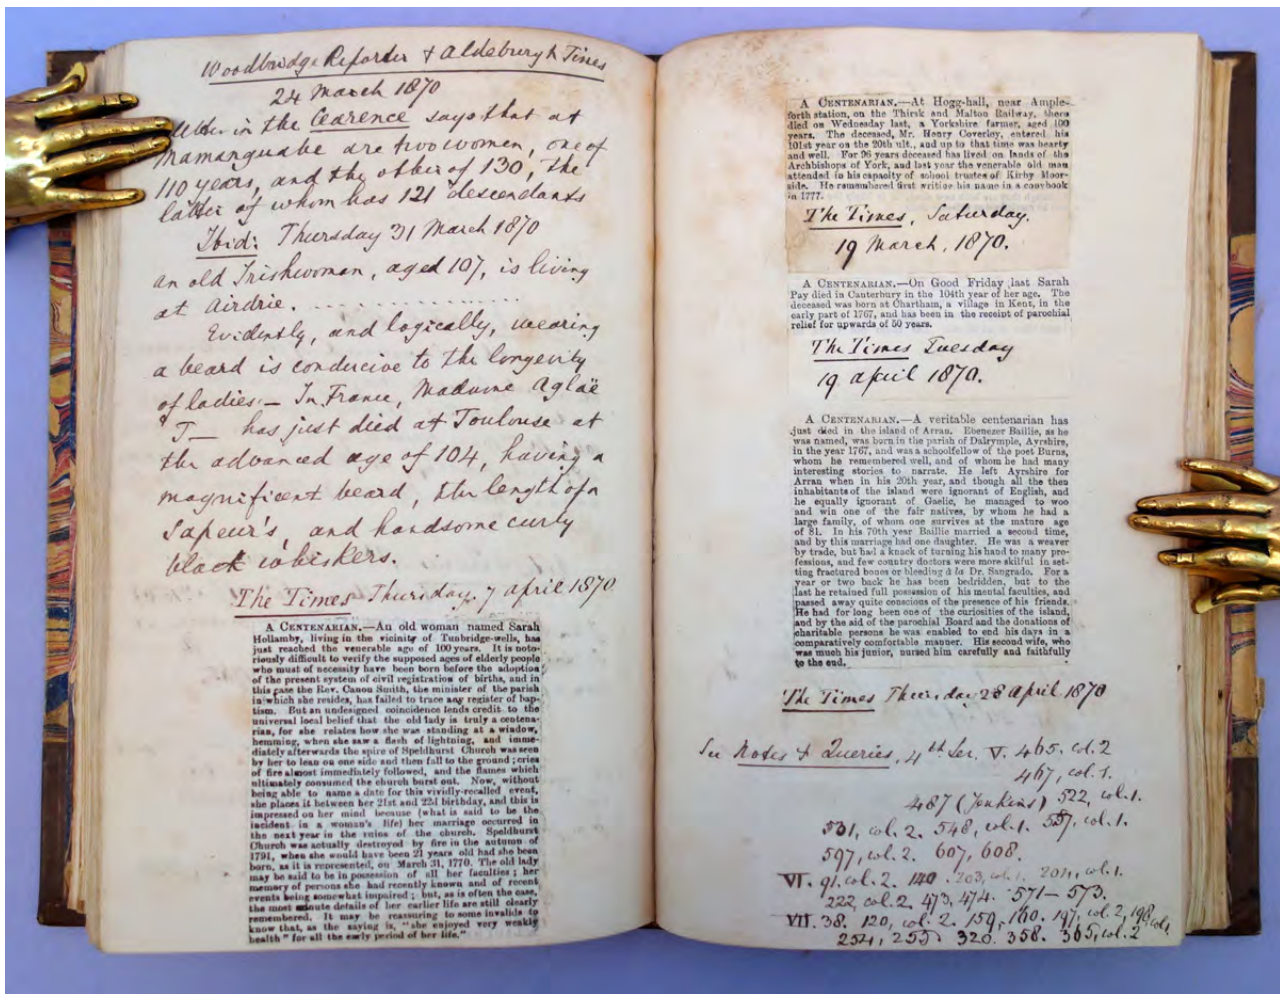 Woodbridge Reporter & Aldeburgh Times
24 March 1870
letter in the Clarence says that at
Mamanguabe are two women, one of
110 years, and the other of 130, the
latter of whom has 121 descendants
Ibid: Thursday 31 March 1870
an old Irishwoman, aged 107, is living
at Airdrie. . . . . . . . . . . . . . .
Evidently, and logically, wearing
a beard is conducive to the longevity
of ladies.— In France, Madame Aglaë
T— has just died at Toulouse at
the advanced age of 104, having a
magnificent beard, the length of a
Sapeur's, and handsome curly
black whiskers.
The Times Thursday. 7 April 1870
A CENTENARIAN.—An old woman named Sarah
Hollamby, living in the vicinity of Tunbridge-wells, has
just reached the venerable age of 100 years. It is noto-
riously difficult to verify the supposed ages of elderly people
who must of necessity have been born before the adoption
of the present system of civil registration of births, and in
this case the Rev. Canon Smith, the minister of the parish
in which she resides, has failed to trace any register of bap-
tism. But an undesigned coincidence lends credit to the
universal local belief that the old lady is truly a centena-
rian, for she relates how she was standing at a window,
hemming, when she saw a flash of lightning, and imme-
diately afterwards the spire of Speldhurst Church was seen
by her to lean on one side and then fall to the ground; cries
of fire almost immediately followed, and the flames which
ultimately consumed the church burst out. Now, without
being able to name a date for this vividly-recalled event,
she places it between her 21st and 22d birthday, and this is
impressed on her mind because (what is said to be the
incident in a woman's life) her marriage occurred in
the next year in the ruins of the church. Speldhurst
Church was actually destroyed by fire in the autumn of
1791, when she would have been 21 years old had she been
born, as it is represented, on March 31, 1770. The old lady
may be said to be in possession of all her faculties; her
memory of persons she had recently known and of recent
events being somewhat impaired; but, as is often the case,
the most minute details of her earlier life are still clearly
remembered. It may be reassuring to some invalids to
know that, as the saying is, "she enjoyed very weakly
health" for all the early period of her life."
A CENTENARIAN.—At Hogg-hall, near Ample-
forth station, on the Thirsk and Malton Railway, there
died on Wednesday last, a Yorkshire farmer, aged 100
years. The deceased, Mr. Henry Coverley, entered his
101st year on the 20th ult., and up to that time was hearty
and well. For 96 years deceased has lived on lands of the
Archbishops of York, and last year the venerable old man
attended in his capacity of school trustee of Kirby Moor-
side. He remembered first writing his name in a copybook
in 1777.
The Times, Saturday.
19 March, 1870.
A CENTENARIAN.—On Good Friday last Sarah
Pay died in Canterbury in the 104th year of her age. The
deceased was born at Chartham, a village in Kent, in the
early part of 1767, and has been in the receipt of parochial
relief for upwards of 50 years.
The Times Tuesday
19 april 1870.
A CENTENARIAN.—A veritable centenarian has
just died in the island of Arran. Ebenezer Baillie, as he
was named, was born in the parish of Dalrymple, Ayrshire,
in the year 1767, and was a schoolfellow of the poet Burns,
whom he remembered well, and of whom he had many
interesting stories to narrate. He left Ayrshire for
Arran when in his 20th year, and though all the then
inhabitants of the island were ignorant of English, and
he equally ignorant of Gaelic, he managed to woo
and win one of the fair natives, by whom he had a
large family, of whom one survives at the mature age
of 81. In his 70th year Baillie married a second time,
and by this marriage had one daughter. He was a weaver
by trade, but had a knack of turning his hand to many pro-
fessions, and few country doctors were more skilful in set-
ting fractured bones or bleeding à la Dr. Sangrado. For a
year or two back he has been bedridden, but to the
last he retained full possession of his mental faculties, and
passed away quite conscious of the presence of his friends.
He had for long been one of the curiosities of the island,
and by the aid of the parochial Board and the donations of
charitable persons he was enabled to end his days in a
comparatively comfortable manner. His second wife, who
was much his junior, nursed him carefully and faithfully
to the end.
The Times Thursday 28 April 1870
See Notes & Queries, 4th Ser. V. 465. col. 2
467, col. 1.
487 (Jenkins) 522, col. 1.
531, col. 2. 548, col. 1. 557, col. 1.
597, col. 2. 607, 608.
VI. 91. col. 2. 140. 203, col. 1. 204, col. 1.
222, col. 2. 473, 474. 571–573.
VII. 38. 120, col. 2. 159, 160. 197, col. 2, 198, col.
254, 255. 320. 358. 365, col. 2